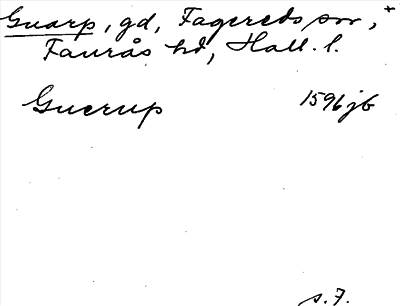 Guarp, gd, Fagereds sn, +
Faurås hd, Hall. l.
Guerup 1596 jb
s. 7.